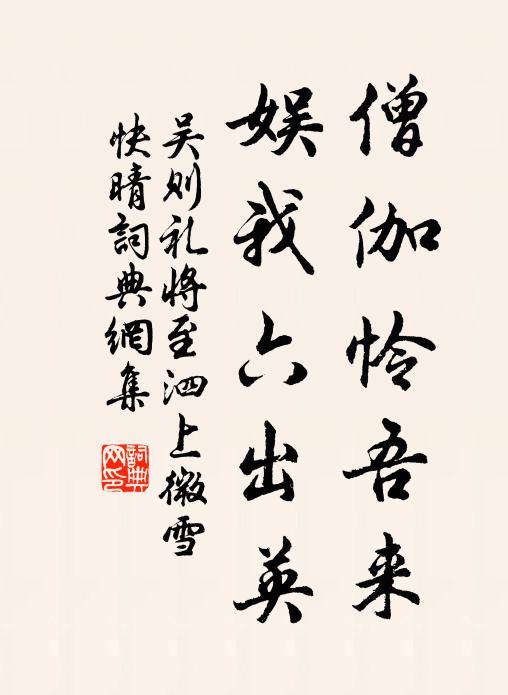 僧伽怜吾来
娱我六出英
吴则礼将至泗上微雪
快晴詞典網集
詞典
网印